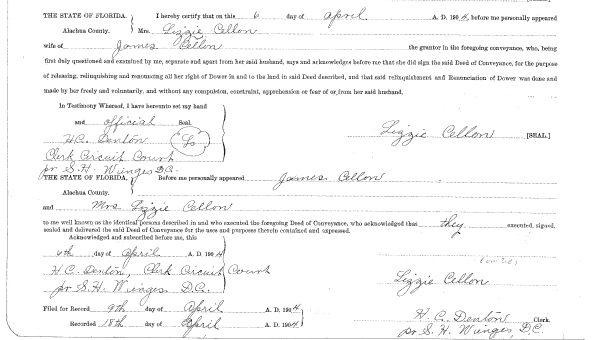 THE STATE OF FLORIDA. I hereby certify that on this 6 day of April A. D. 1904, before me personally appeared
Alachua County. Mrs. Lizzie Cellon
wife of James Cellon the grantor in the foregoing conveyance, who, being
first duly questioned and examined by me, separate and apart from her said husband, says and acknowledges before me that she did sign the said Deed of Conveyance, for the purpose
of releasing, relinquishing and renouncing all her right of Dower in and to the land in said Deed described, and that said relinquishment and Renunciation of Dower was done and
made by her freely and voluntarily, and without any compulsion, constraint, apprehension or fear of or from her said husband.
In Testimony Whereof, I have hereunto set my hand
and official Seal.
H.C. Denton Ls
Clerk Circuit Court
pr S.H. Wienges D.C.
Lizzie Cellon [SEAL]
THE STATE OF FLORIDA. Before me personally appeared James Cellon
Alachua County.
and Mrs. Lizzie Cellon
to me well known as the identical persons described in and who executed the foregoing Deed of Conveyance, who acknowledged that they executed, signed,
sealed and delivered the said Deed of Conveyance for the uses and purposes therein contained and expressed.
Acknowledged and subscribed before me, this
6th day of April A. D. 1904
H.C. Denton, Clerk Circuit Court
pr S.H. Wienges D.C.
Lizzie Cellon
Filed for Record 9th day of April A. D. 1904
Recorded 18th day of April A. D. 1904
H.C. Denton Clerk.
pr S.H. Wienges, D.C.